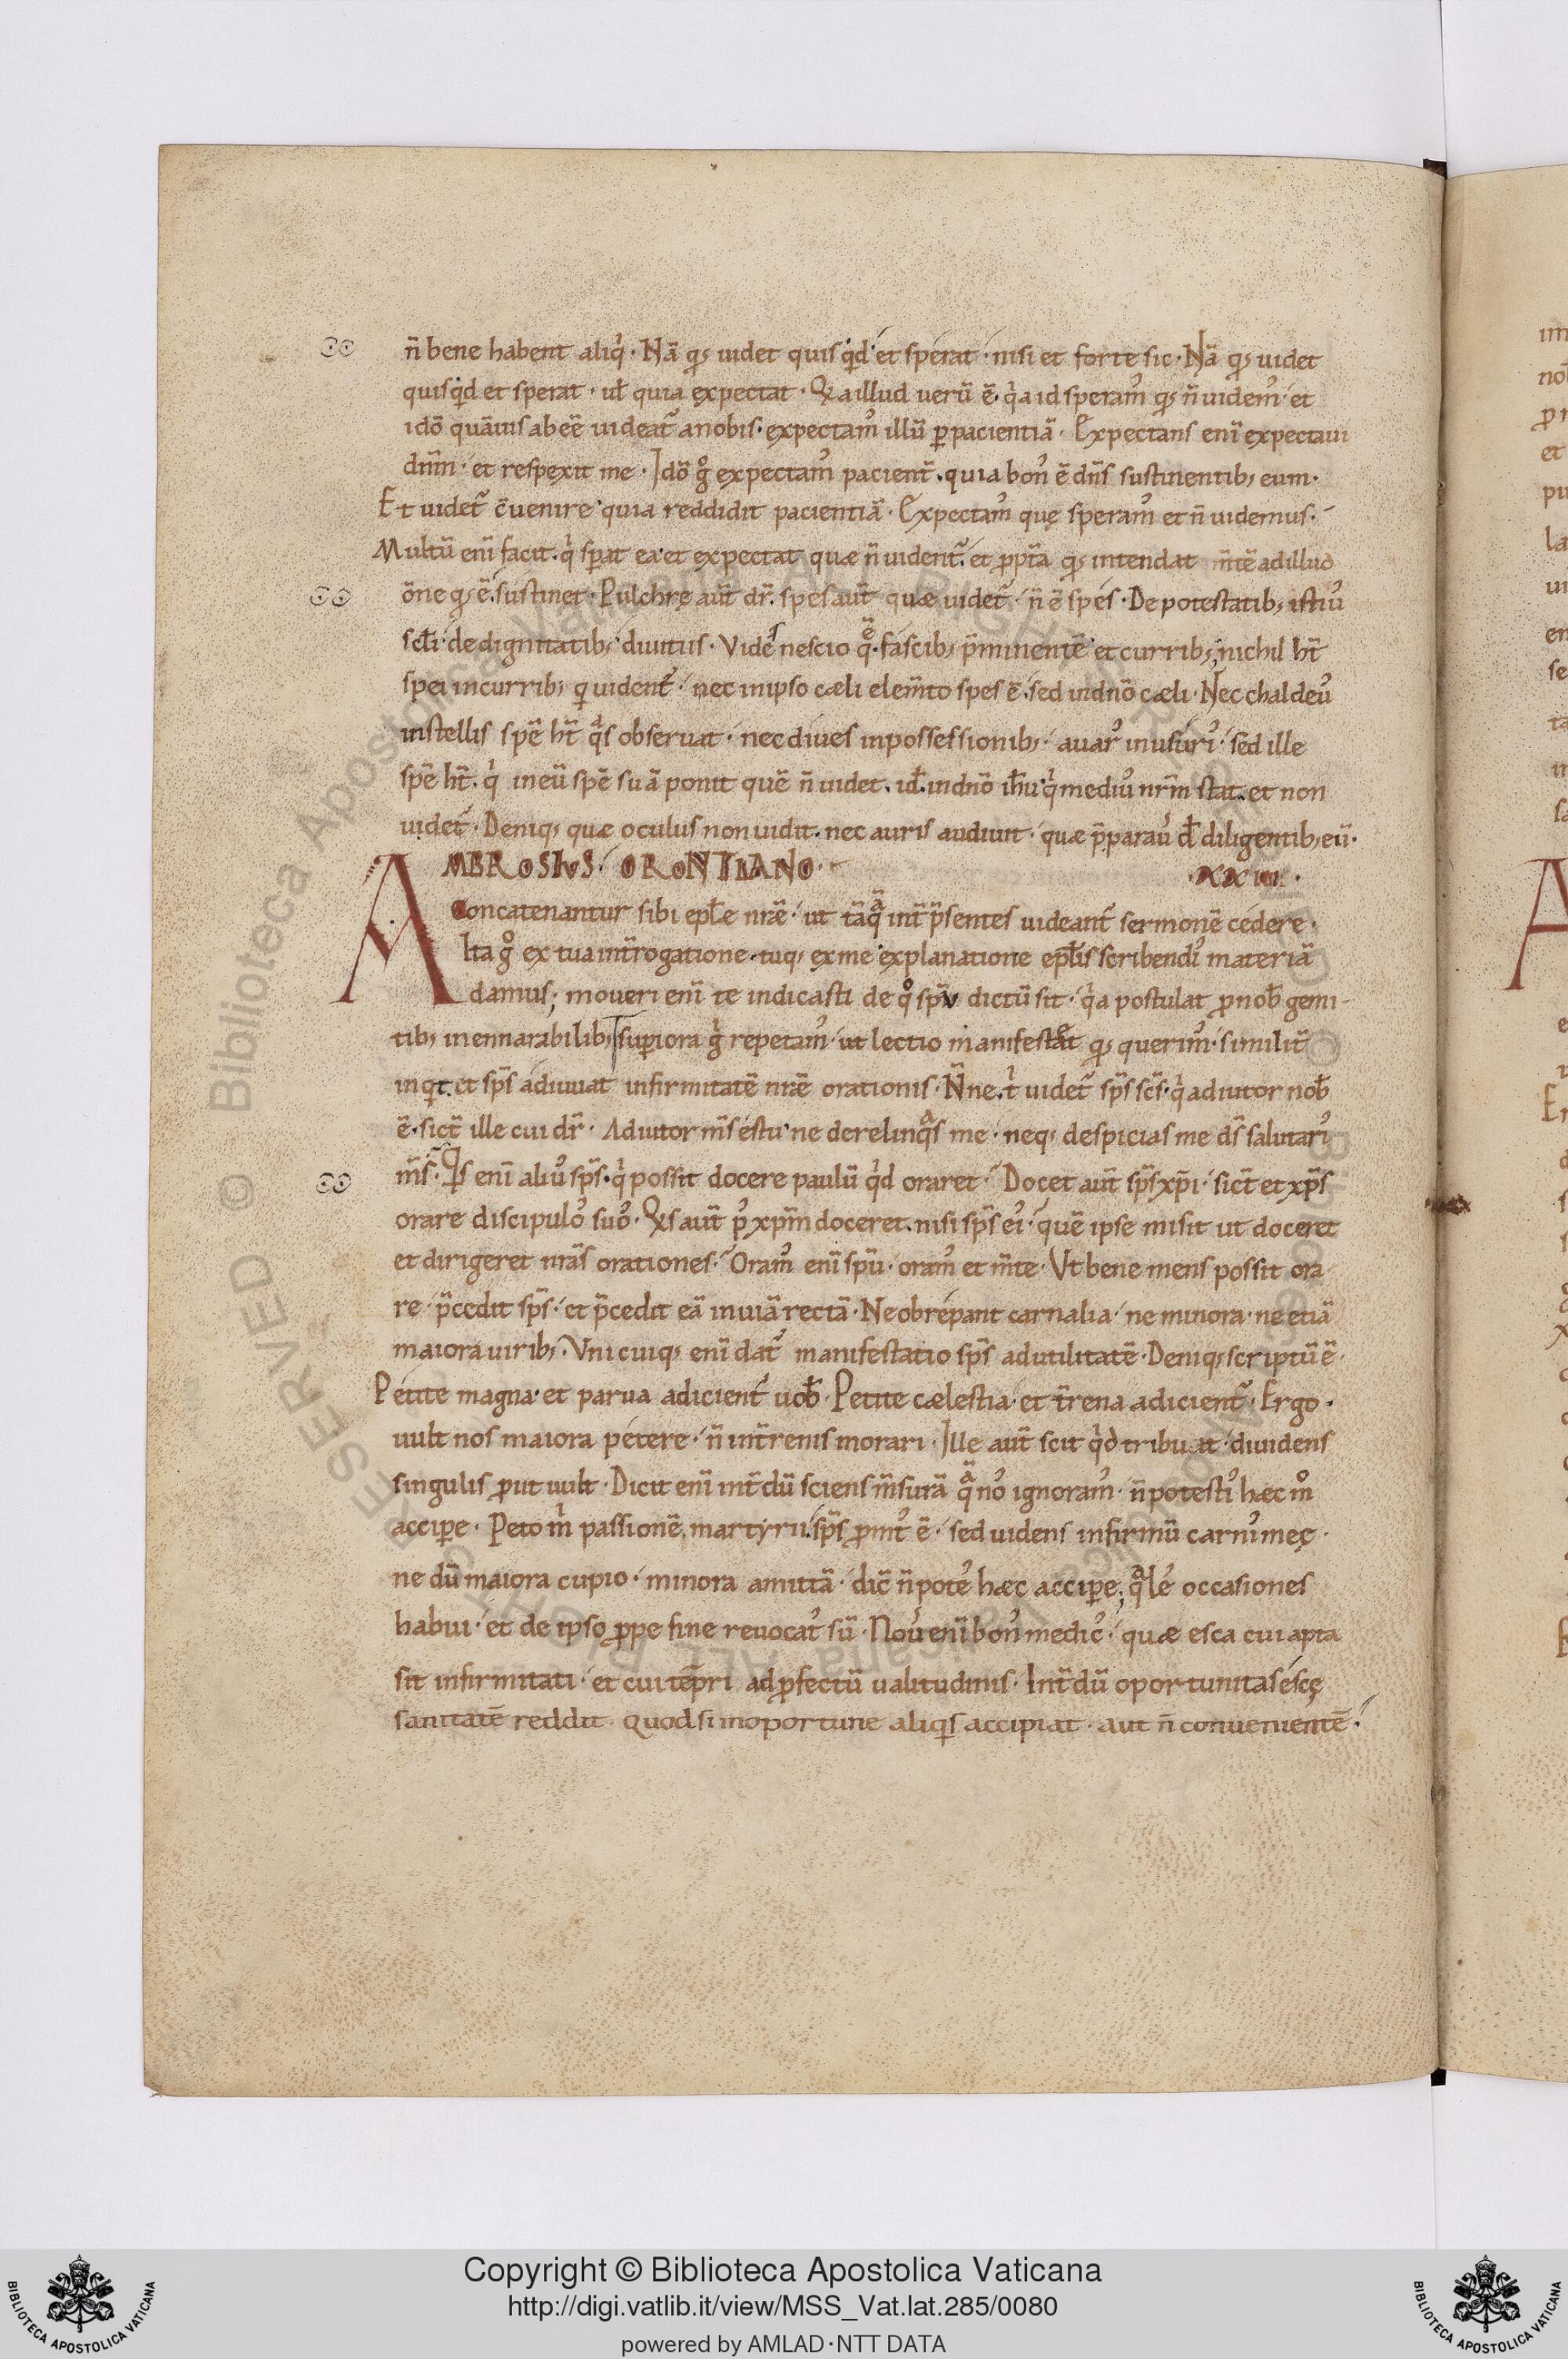 n̄ bene habent aliq̇. Nā qͥ uidet quis qͥd et sperat. nisi et forte sic. Nā qͥ uidet
quisqͥd et sperat. uł quia expectat. Qͣ illud uerū ē. qͥa id speram᾽ qͥ n̄ uidem᾽. et
idō quāuis abeē uideat᷑ a nobis. expectam᾽ illū ꝑ pacientiā. Expectans enī expectaui
dn̄m. et respexit me. Idō gͦ expectam᾽ pacient̄. quia bon᾽ ē dn̄s sustinentib; eum.
Et uidet᷑ c̄uenire quia reddidit pacientiā. Expectam᾽ quę speram᾽ et n̄ uidemus.
Multū enī facit. qͥ sꝑat ea et expectat quæ n̄ uident᷑. et ꝓpt̄a qͥ intendat m̄tē ad illud
ōne qͥ ē. sustinet. Pulchrę aut̄ dr̄. spes aut̄ quæ uidet᷑. n̄ ē spes. De potestatib; isti᾽
scłi. de dignitatib; diuitiis. Vides nescio qͤ̄. fascib; p̄minentē et currib; nichil ht̄
spei in currib; q uident᷑. nec in ipso cæli elem̄to spes ē. sed in dn̄o cæli. Nec chaldeu᾽
in stellis spē ht̄ qͥs obseruat. nec diues in possessionib;. auar᾽ in usuri᾽. sed ille
spē ht̄. qͥ in eū spē suā ponit quē n̄ uidet. id̄. in dn̄o ih̄u qͥ mediu᾽ nr̄m stat. et non
uidet᷑. Deniq; quæ oculus non uidit. nec auris audiuit. quæ p̄parau᾽ d̄s diligentib; eū.
AMBROSIVS. ORONTIANO. XXIIII.
Concatenantur sibi epłe nrē. ut tāqͣ̄ int̄ p̄sentes uideant᷑ sermonē cedere.
Ita gͦ ex tua int̄rogatione. tuq; ex me explanatione epłis scribendi᾽ materiā
damus; moueri enī te indicasti de qͦ spū dictū sit. qͥa postulat pro nob̄ gemi-
tib; inennarabilib; superiora gͥ repetam᾽. ut lectio manifestat qͥ querim᾽. similit̄
inqͥt. et sp̄s adiuuat infirmitatē nrē orationis. N̄ne. tͥ uidet᷑ sp̄s sc̄s. qͥ adiutor nob̄
ē. sict̄ ille cui dr̄. Adiutor m̄s estu ne derelinqͣs me. neq; despicias me ds̄ salutari᾽
m̄s. Qͥs enī aliu᾽ sp̄s. qͥ possit docere paulū qͥd oraret. Docet aut̄ sp̄s xp̄i. sict̄ et xp̄s
orare discipulo᾽ suo᾽. Qͥs aut̄ p᾽ xp̄m doceret. nisi sp̄s ei᾽. quē ipse misit ut doceret
et dirigeret nrās orationes. Oram᾽ enī spū. oram᾽ et m̄te. Vt bene mens possit ora-
re. p̄cedit sp̄s. et p̄cedit eā in uiā rectā. Ne obrepant carnalia. ne minora. ne etiā
maiora uirib;. Vnicuiq; enī dat᷑ manifestatio sp̄s ad utilitatē. Deniq; scriptū ē.
Petite magna. et parua adicient᷑ uob̄. Petite cælestia. et t̄rena adicient᷑. Ergo.
uult nos maiora petere. n̄ in t̄renis morari. Ille aut̄ scit qͥd tribuat. diuidens
singulis ꝓut uult. Dicit enī int̄dū sciens m̄surā qͣ̄ no᾽ ignoram᾽. n̄ potesti᾽ hæc mͦ
accipe. Peto mͥ passionē martyrii. sp̄s prͦmt᾽ ē. sed uidens infirmū carni᾽ meę.
ne dū maiora cupio. minora amittā. dic̄ n̄ pote᾽ hæc accipe; qͣle᾽ occasiones
habui. et de ipso ꝓpe fine reuocat᾽ sū. Nou᾽ enī bon᾽ medic᾽. quæ esca cui apta
sit infirmitati. et cui tēpri ad ꝓfectū ualitudinis. Int̄dū oportunitas escę
sanitatē reddit. quod si inoportune aliqͥs accipiat. aut n̄ conuenientē.
Copyright © Biblioteca Apostolica Vaticana
http://digi.vatlib.it/view/MSS_Vat.lat.285/0080
powered by AMLAD·NTT DATA